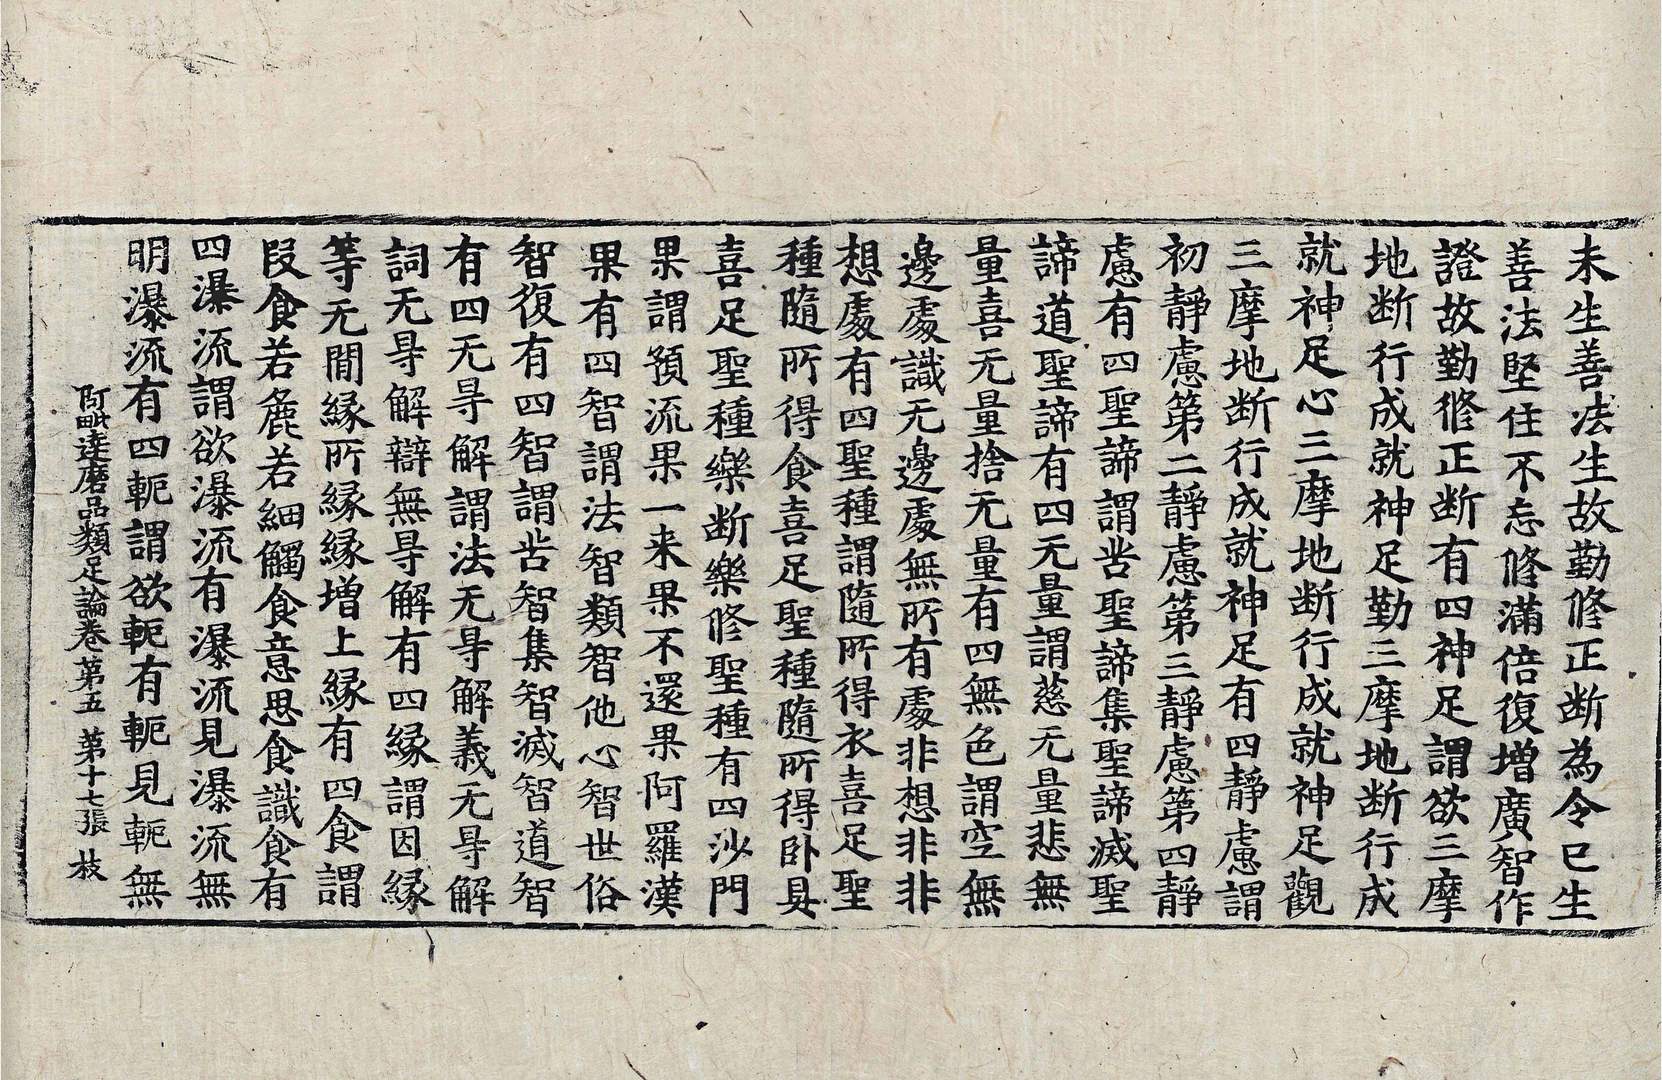 未生善法生故勤修正断為令已生
善法堅住不忘修滿倍復增廣智作
證故勤修正断有四神足謂欲三摩
地断行成就神足勤三摩地断行成
就神足心三摩地断行成就神足觀
三摩地断行成就神足有四靜慮謂
初靜慮第二靜慮第三靜慮第四靜
慮有四聖諦謂苦聖諦集聖諦滅聖
諦道聖諦有四无量謂慈无量悲無
量喜无量捨无量有四無色謂空無
邊處識无邊處無所有處非想非非
想處有四聖種謂隨所得衣喜足聖
種隨所得食喜足聖種隨所得卧具
喜足聖種樂断樂修聖種有四沙門
果謂預流果一来果不還果阿羅漢
果有四智謂法智類智他心智世俗
智復有四智謂苦智集智滅智道智
有四无㝵解謂法无㝵解義无㝵解
詞无㝵解辯無㝵解有四縁謂因縁
等无間縁所縁縁增上縁有四食謂
段食若麁若細觸食意思食識食有
四瀑流謂欲瀑流有瀑流見瀑流無
明瀑流有四軛謂欲軛有軛見軛無
阿毗達磨品類足論卷第五 第十七張 枝